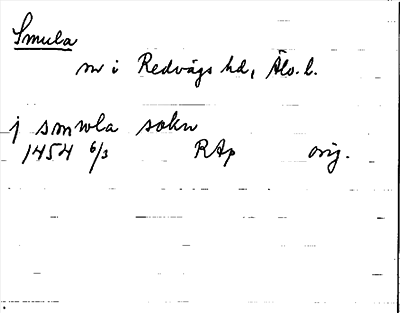 Smula
sn i Redvägs hd, Älvs. l.
j smwla sokn
1454 6/3 RAp orig.